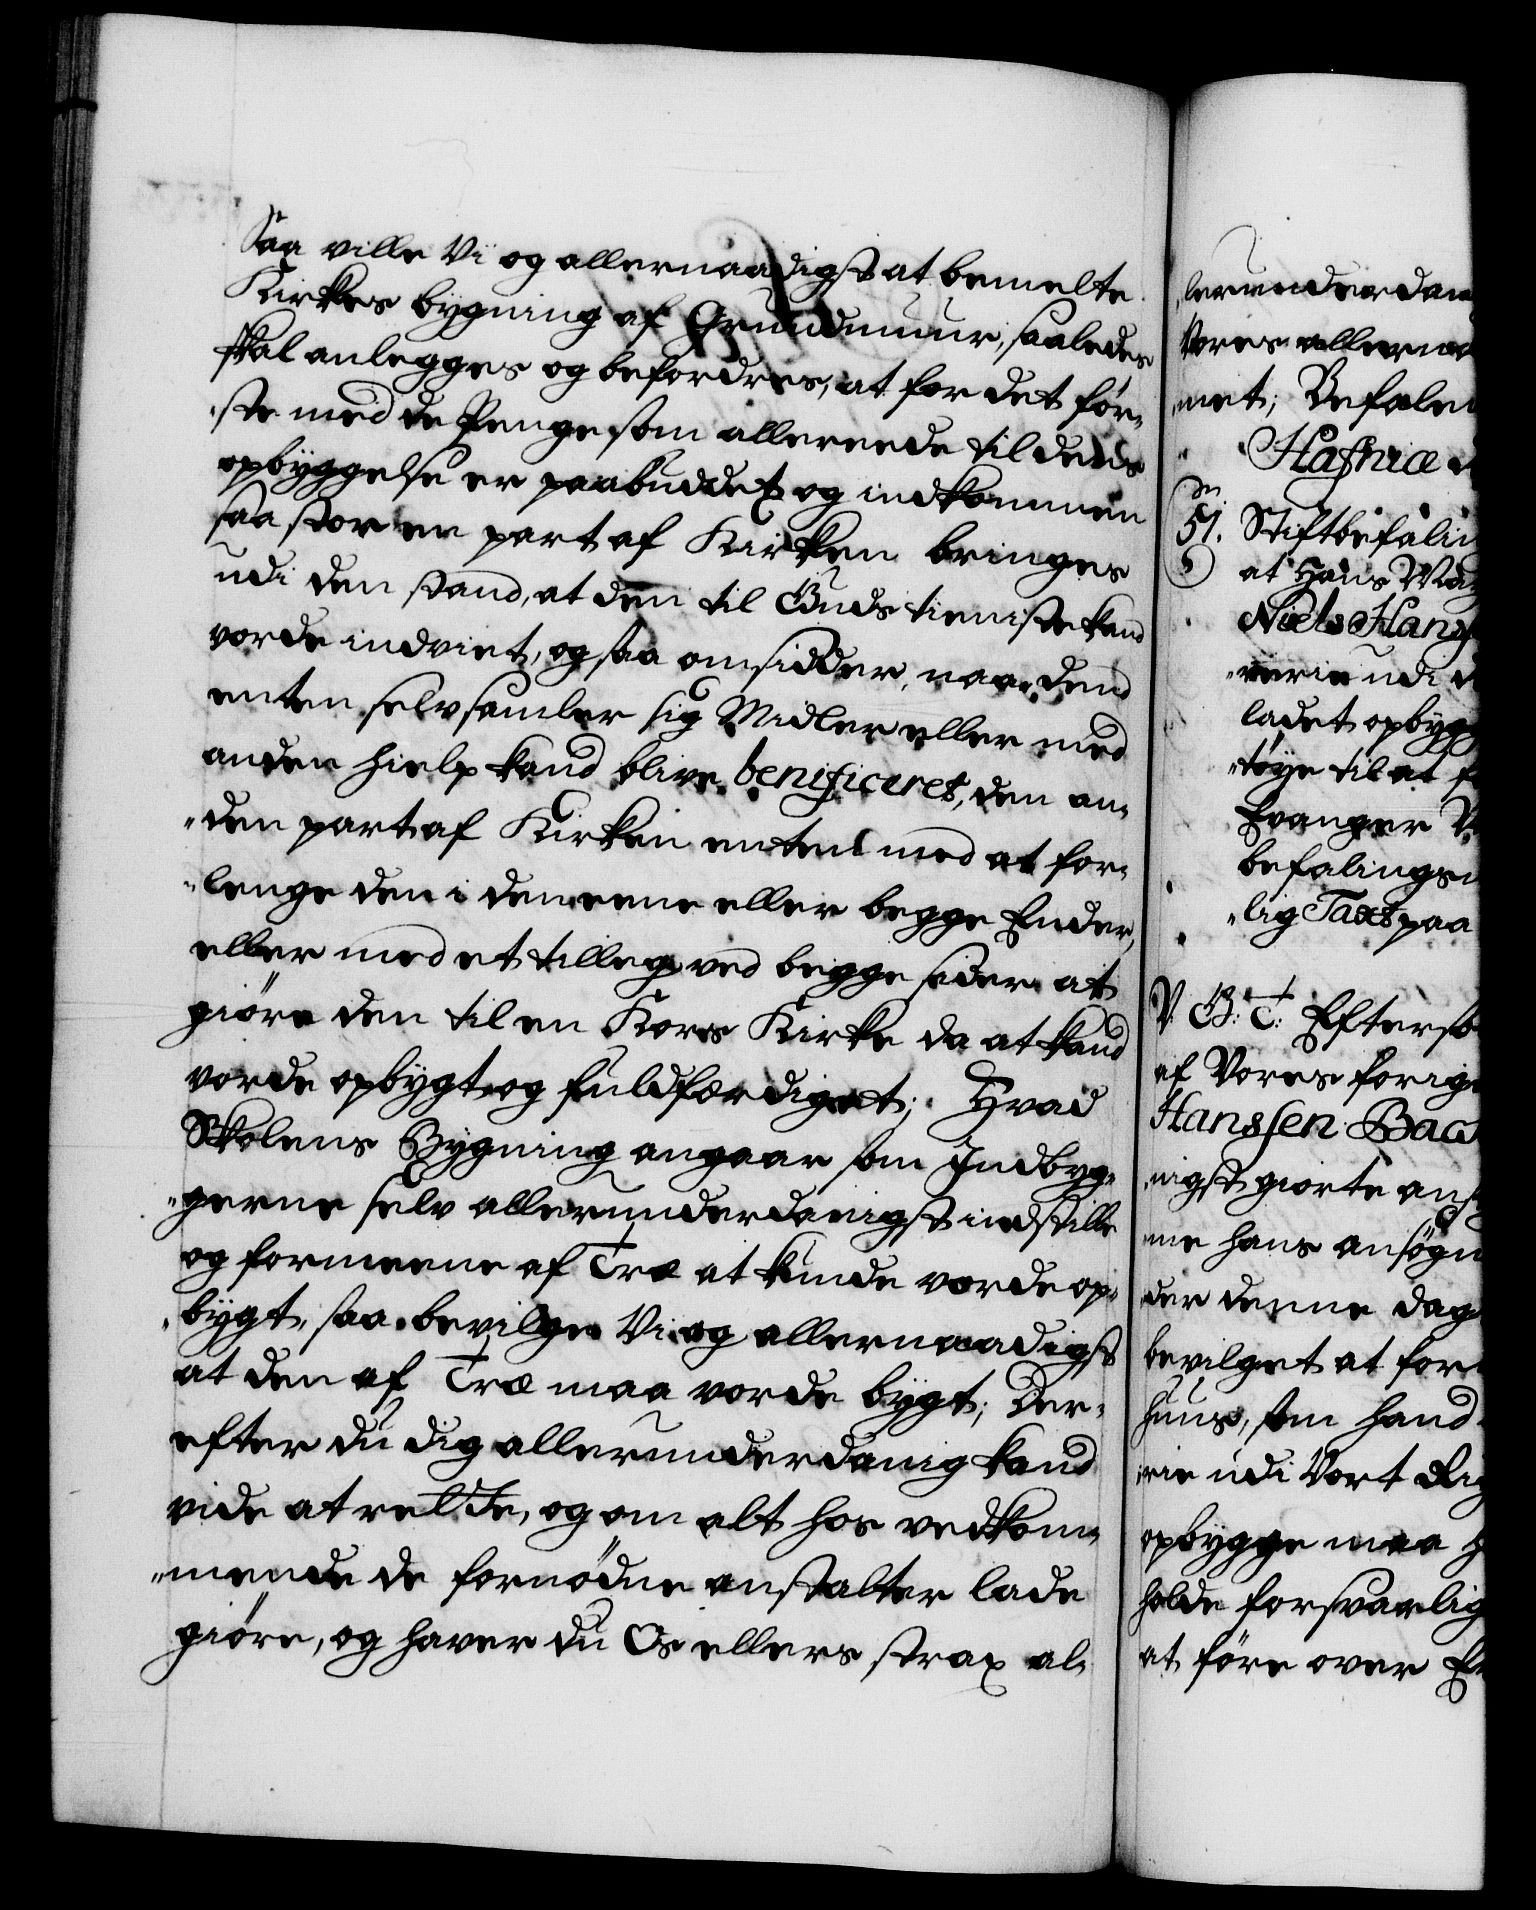 Saa ville Vi og allernaadigst at bemelte
Kirkes bygning af Grundmuur, saaledes
skal anlegges og befordres, at for det för-
ste med de Penge som allereede til dens
opbyggelse er paabuddet og indkommen
saa stor en part af Kirken bringes
udi den stand, at den til Guds tieniste kand
vorde indviet, og saa omsidder, naar dend
enten selv samler sig Midler eller med
anden hielp kand blive beneficeret, den an-
den part af Kirken enten med at for-
lenge den i den eene eller begge Ender,
eller med et tilleg ved begge sider at
giöre den til en Kors Kirke da at kand
vorde opbygt og fuldfærdiget; Hvad
Skolens Bygning angaar som Indbyg-
gerne selv allerunderdanigst indstille
og formeene af Træ at kunde vorde op-
bygt, saa bevilge Vi og allernaadigst
at den af Træ maa vorde bygt; Der-
efter du dig allerunderdanig kand
vide at rette, og om alt hos vedkom-
mende de fornödne anstalter lade
giöre, og haver du Os ellers strax al-
lerunderdan
Vores allerna
met; Befalen
Hafniæ d
51. Stiftbefalin
at Hans
Niels Hans
verie udi d
ladet opbyg
töye til at f
Evanger V
befalings
lig Taxt paa
V. G. T. Eftersom
af Vores forige
Hanssen Bac
nigst giorte ans
me hans ansögn
der denne dag
bevilget at for
huus, som hand
rie udi Vort Rig
opbygge maa h
holde forsvarlig
at före over E